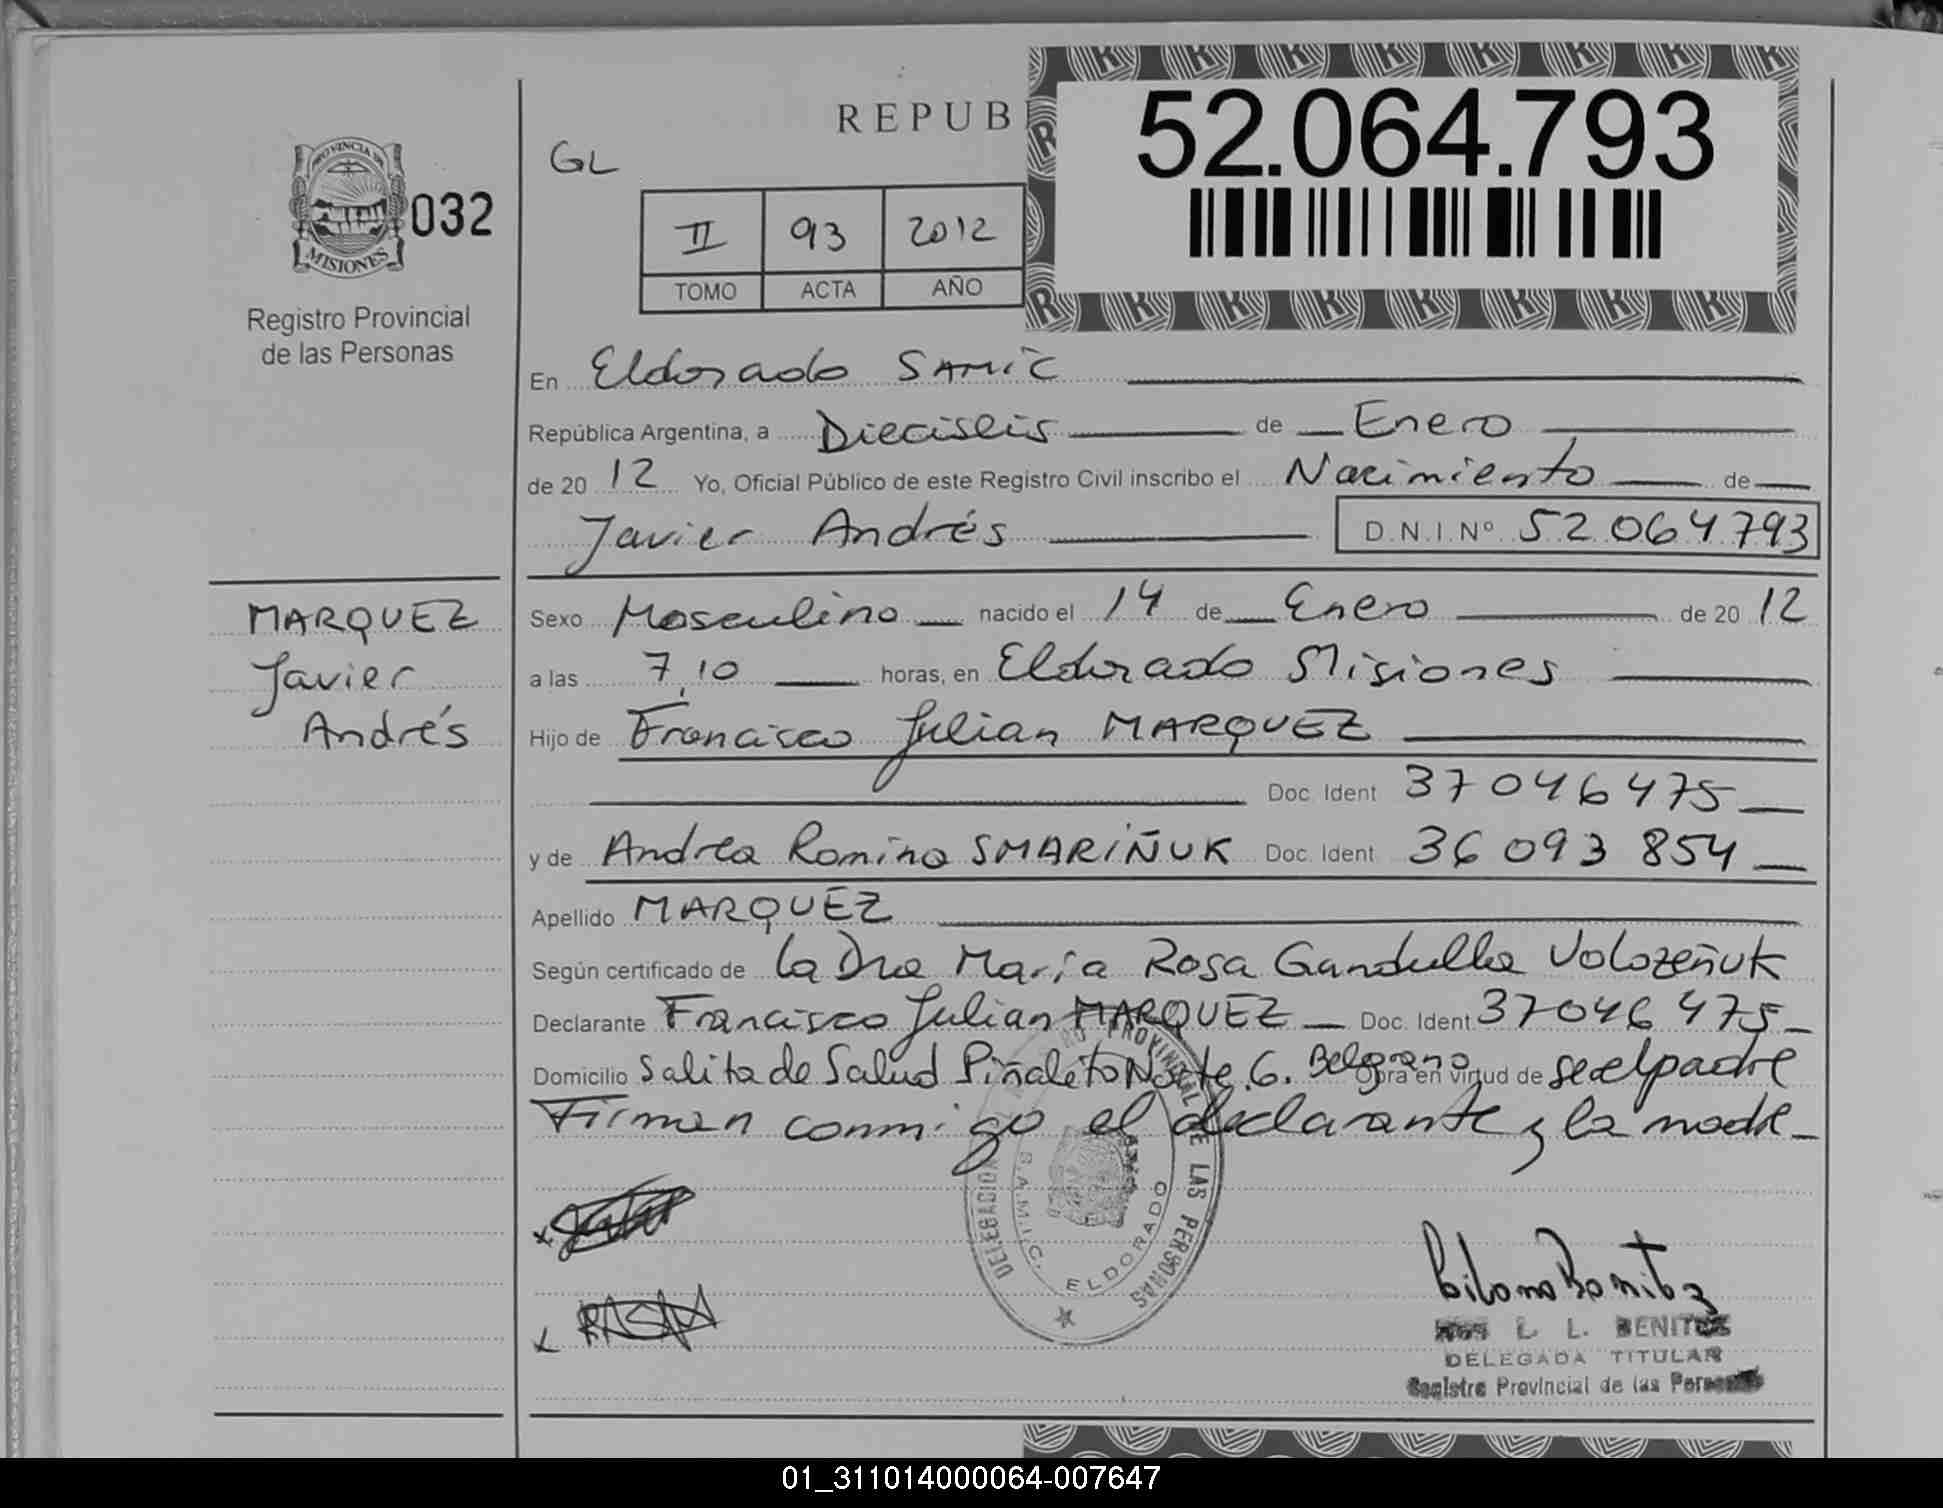 REPUB
52.064.793
GL
PROVINCIA DE
MISIONES
032
II 93 2012
TOMO ACTA AÑO
Registro Provincial
de las Personas
En Eldorado SAMIC
República Argentina, a Dieciséis de Enero
de 2012 Yo, Oficial Público de este Registro Civil inscribo el Nacimiento de
Javier Andrés D.N.I.Nº 52.064.793
MARQUEZ
Javier
Andrés
Sexo Masculino nacido el 14 de Enero de 2012
a las 7,10 horas, en Eldorado Misiones
Hijo de Francisco Julian MARQUEZ
Doc. Ident 37046475
y de Andrea Romina SMARIÑUK Doc. Ident 36093854
Apellido MARQUEZ
Según certificado de la Dra Maria Rosa Gandulla Volozeñuk
Declarante Francisco Julian MARQUEZ Doc. Ident. 37046475
Domicilio Salita de Salud Piñalito Norte G. Belgrano Obra en virtud de se el padre
Firman conmigo el declarante y la madre
DELEGACION PROVINCIAL DE LAS PERSONAS
S.A.M.I.C. ELDORADO
L. L. BENITEZ
DELEGADA TITULAR
Registro Provincial de las Personas
01_311014000064-007647